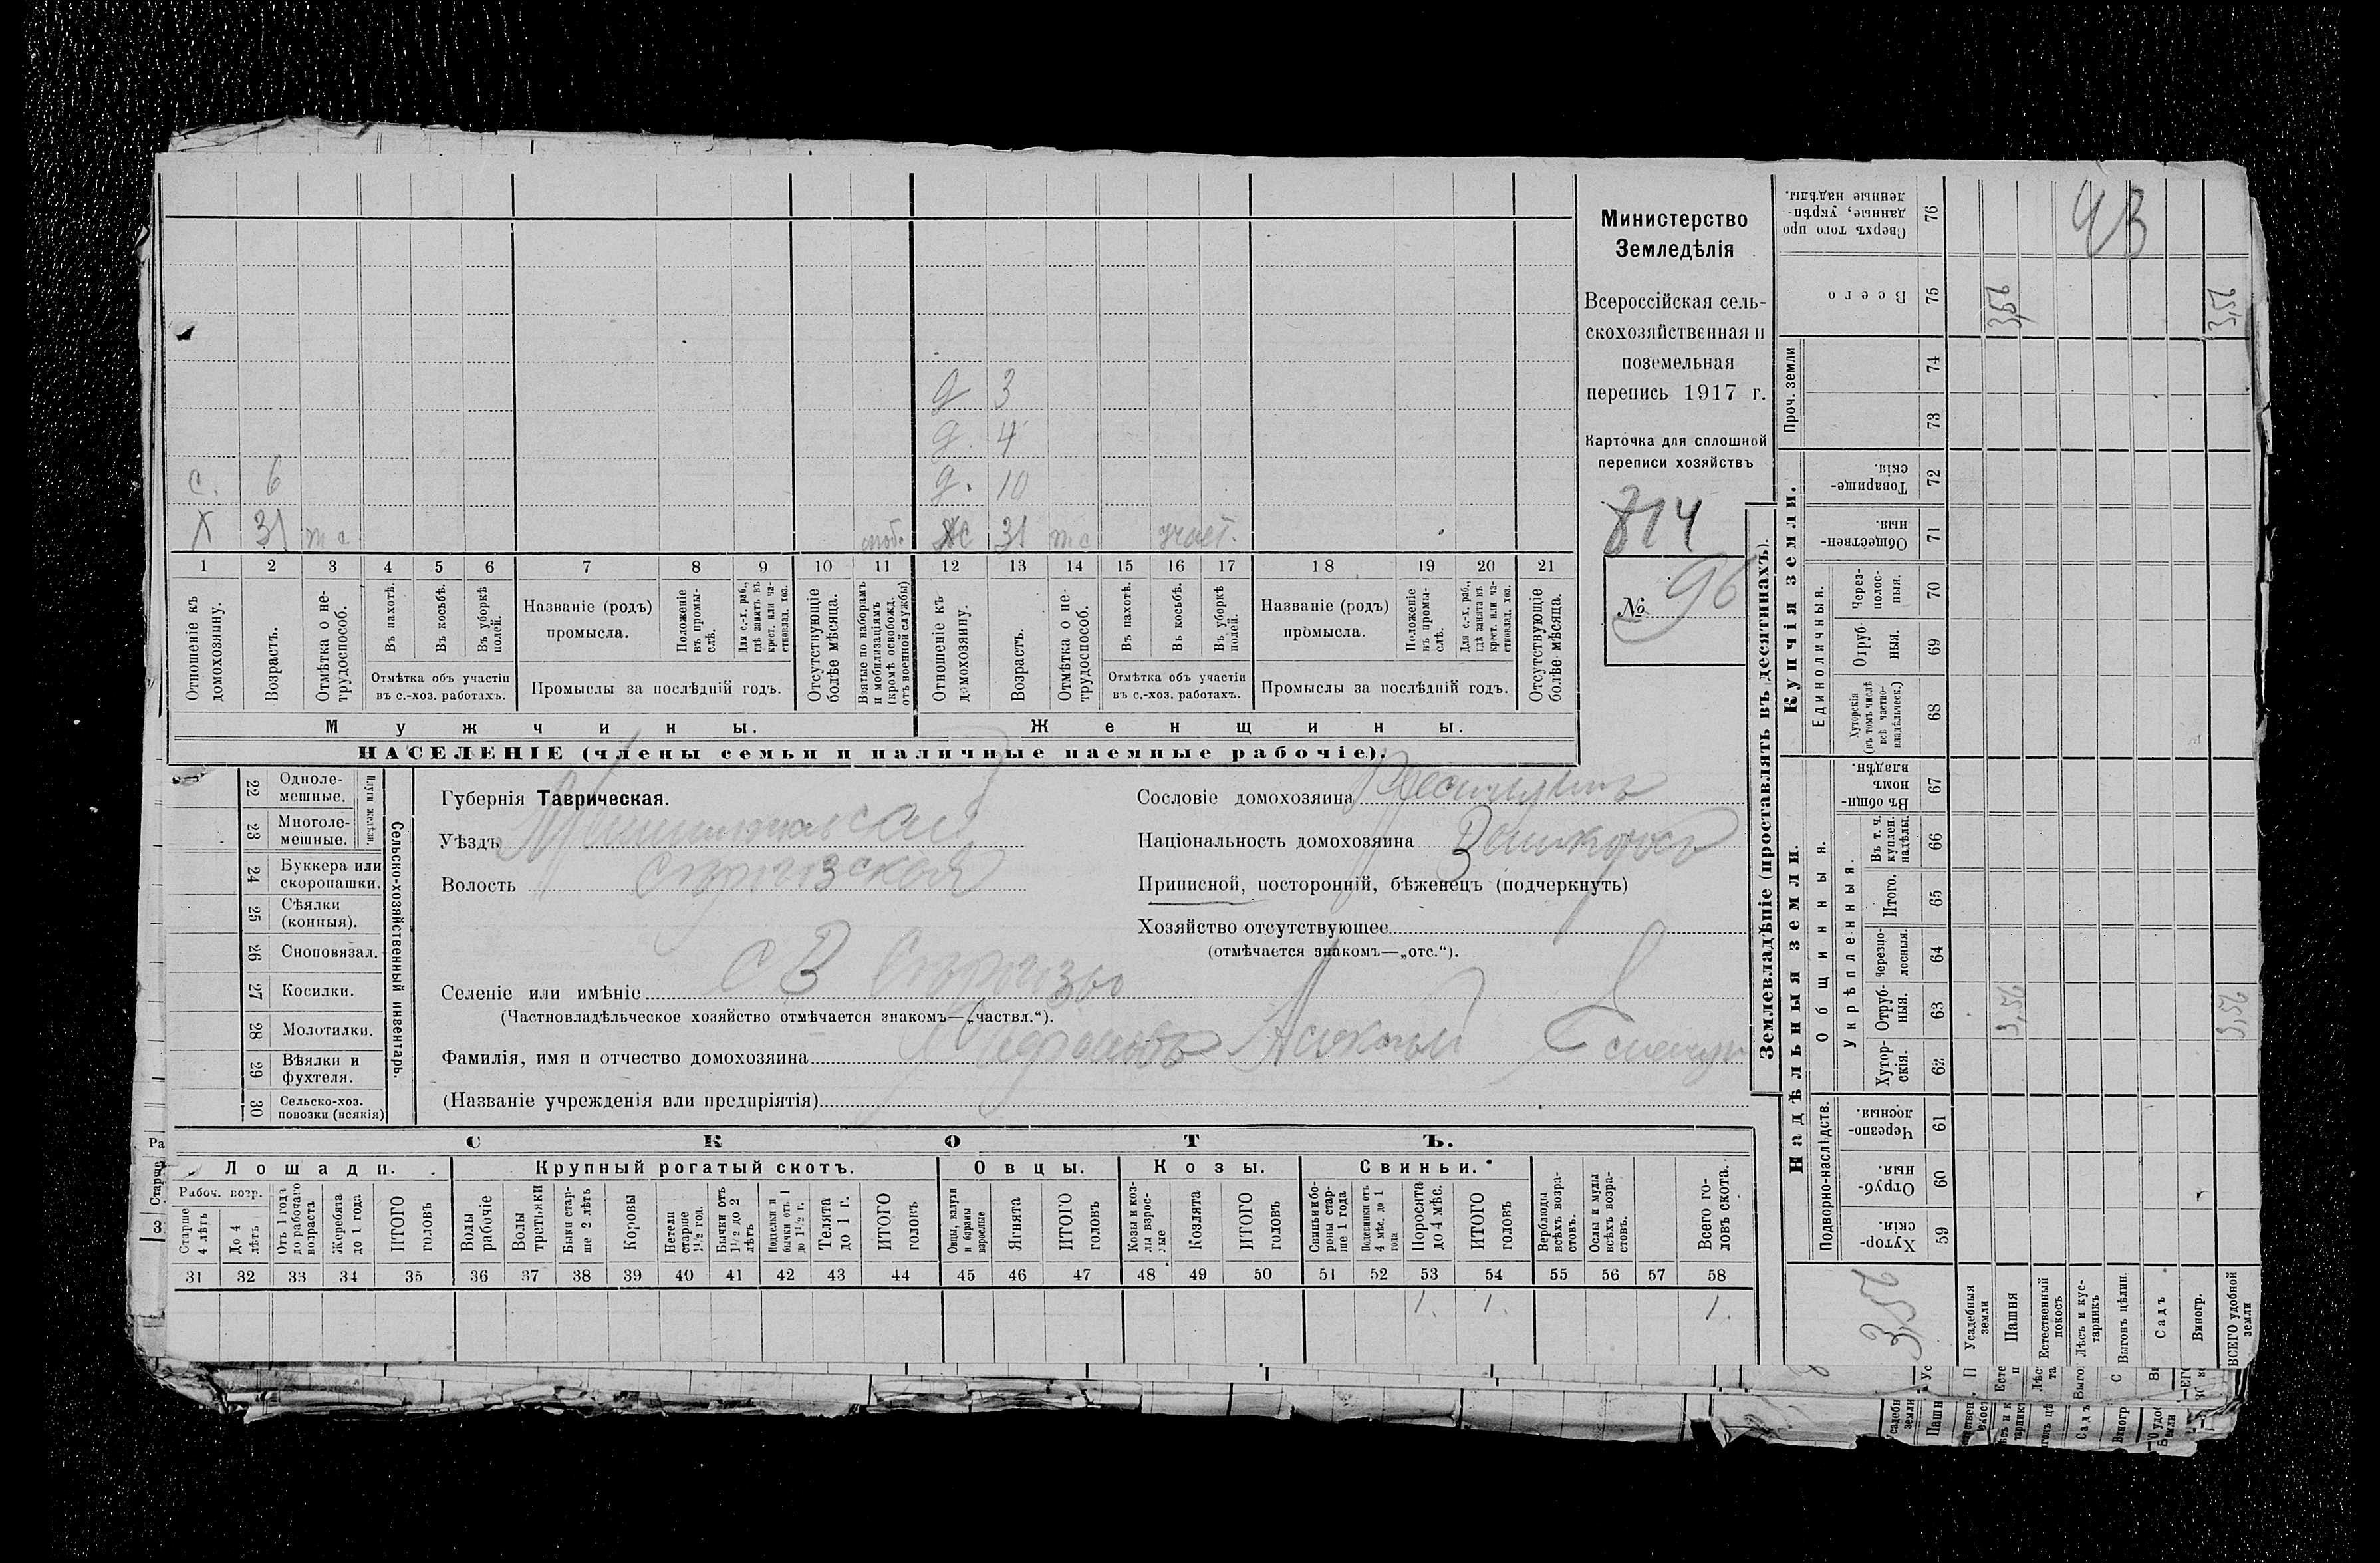 Министерство
Земледѣлія
Всероссійская сель-
скохозяйственная и
поземельная
перепись 1917 г.
Карточка для сплошной
переписи хозяйствъ
814
№ 96
д 3
д. 4
с. 6
д. 10
Х 31 т с моб. Ж 31 т с участ.
1 2 3 4 5 6 7 8 9 10 11 12 13 14 15 16 17 18 19 20 21
Отношеніе къ домохозяину.
Возрастъ.
Отмѣтка о не-трудоспособ.
Въ пахотѣ.
Въ косьбѣ.
Въ уборкѣ полей.
Отмѣтка объ участіи
въ с.-хоз. работахъ.
Названіе (родъ)
промысла.
Положеніе въ промы-слѣ.
Для с.-х. раб., гдѣ занятъ въ крест. или ча-стновлад. хоз.
Промыслы за послѣдній годъ.
Отсутствующіе болѣе мѣсяца.
Взятые по наборамъ и мобилизаціямъ (кромѣ освобожд. отъ военной службы)
Отношеніе къ домохозяину.
Возрастъ.
Отмѣтка о не-трудоспособ.
Въ пахотѣ.
Въ косьбѣ.
Въ уборкѣ полей.
Отмѣтка объ участіи
въ с.-хоз. работахъ.
Названіе (родъ)
промысла.
Положеніе въ промы-слѣ.
Для с.-х. раб., гдѣ занята въ крест. или ча-стновлад. хоз.
Промыслы за послѣдній годъ.
Отсутствующіе болѣе мѣсяца.
Мужчины.
Женщины.
НАСЕЛЕНІЕ (члены семьи и наличные наемные рабочіе).
22 Одноле-мешные.
23 Многоле-мешные.
Плуги желѣзн.
24 Буккера или скоропашки.
25 Сѣялки (конныя).
26 Сноповязал.
27 Косилки.
28 Молотилки.
29 Вѣялки и фухтеля.
30 Сельско-хоз. повозки (всякія)
Сельско-хозяйственный инвентарь.
Губернія Таврическая.
Уѣздъ
Волость
Селеніе или имѣніе
(Частновладѣльческое хозяйство отмѣчается знакомъ—„частвл.“).
Фамилія, имя и отчество домохозяина
(Названіе учрежденія или предпріятія)
Сословіе домохозяина
Національность домохозяина
Приписной, посторонній, бѣженецъ (подчеркнуть)
Хозяйство отсутствующее
(отмѣчается знакомъ—„отс.“).
СКОТЪ.
Лошади.
Крупный рогатый скотъ.
Овцы.
Козы.
Свиньи.
Рабоч. возр.
Старше 4 лѣтъ
До 4 лѣтъ
Отъ 1 года до рабочаго возраста
Жеребята до 1 года
ИТОГО головъ
Волы рабочіе
Волы третьяки
Быки стар-ше 2 лѣтъ
Коровы
Нетели старше 1½ год.
Бычки отъ 1½ до 2 лѣтъ
Подтелки и бычки отъ 1 до 1½ г.
Телята до 1 г.
ИТОГО головъ
Овцы, валухи и бараны взрослые
Ягнята
ИТОГО головъ
Козы и коз-лы взрос-лые
Козлята
ИТОГО головъ
Свиньи и бо-ровы стар-ше 1 года
Подсвинки отъ 4 мѣс. до 1 года
Поросята до 4 мѣс.
ИТОГО головъ
Верблюды всѣхъ возра-стовъ.
Ослы и мулы всѣхъ возра-стовъ.
Всего го-ловъ скота.
31 32 33 34 35 36 37 38 39 40 41 42 43 44 45 46 47 48 49 50 51 52 53 54 55 56 57 58
1. 1. 1.
Землевладѣніе (проставлять въ десятинахъ).
Надѣльныя земли.
Купчія земли.
Проч. земли
Подворно-наслѣдств.
Общинныя.
Укрѣпленныя.
Единоличныя.
59 Хутор-скія.
60 Отруб-ныя.
61 Черезпо-лосныя.
62 Хутор-скія.
63 Отруб-ныя.
64 Черезпо-лосныя.
65 Итого.
66 Въ т. ч. куплен. надѣлы.
67 Въ общи-номъ владѣн.
68 Хуторскія (въ томъ числѣ всѣ частно-владѣльческ.)
69 Отруб-ныя.
70 Через-полос-ныя.
71 Обществен-ныя.
72 Товарище-скія.
73
74
75 Всего
76 Сверхъ того про-данные, укрѣп-ленные надѣлы.
43
3,56
3,56
3,56
3,56
3,56
Усадебныя земли
Пашня
Естественный покосъ
Лѣсъ и кус-тарникъ
Выгонъ цѣлин.
Садъ
Виногр.
ВСЕГО удобной земли